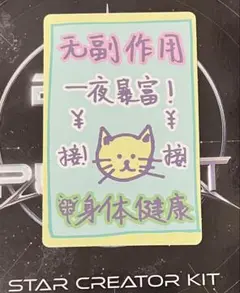 无副作用
一夜暴富!
¥ ¥
接! 接!
身体健康
STAR CREATOR KIT